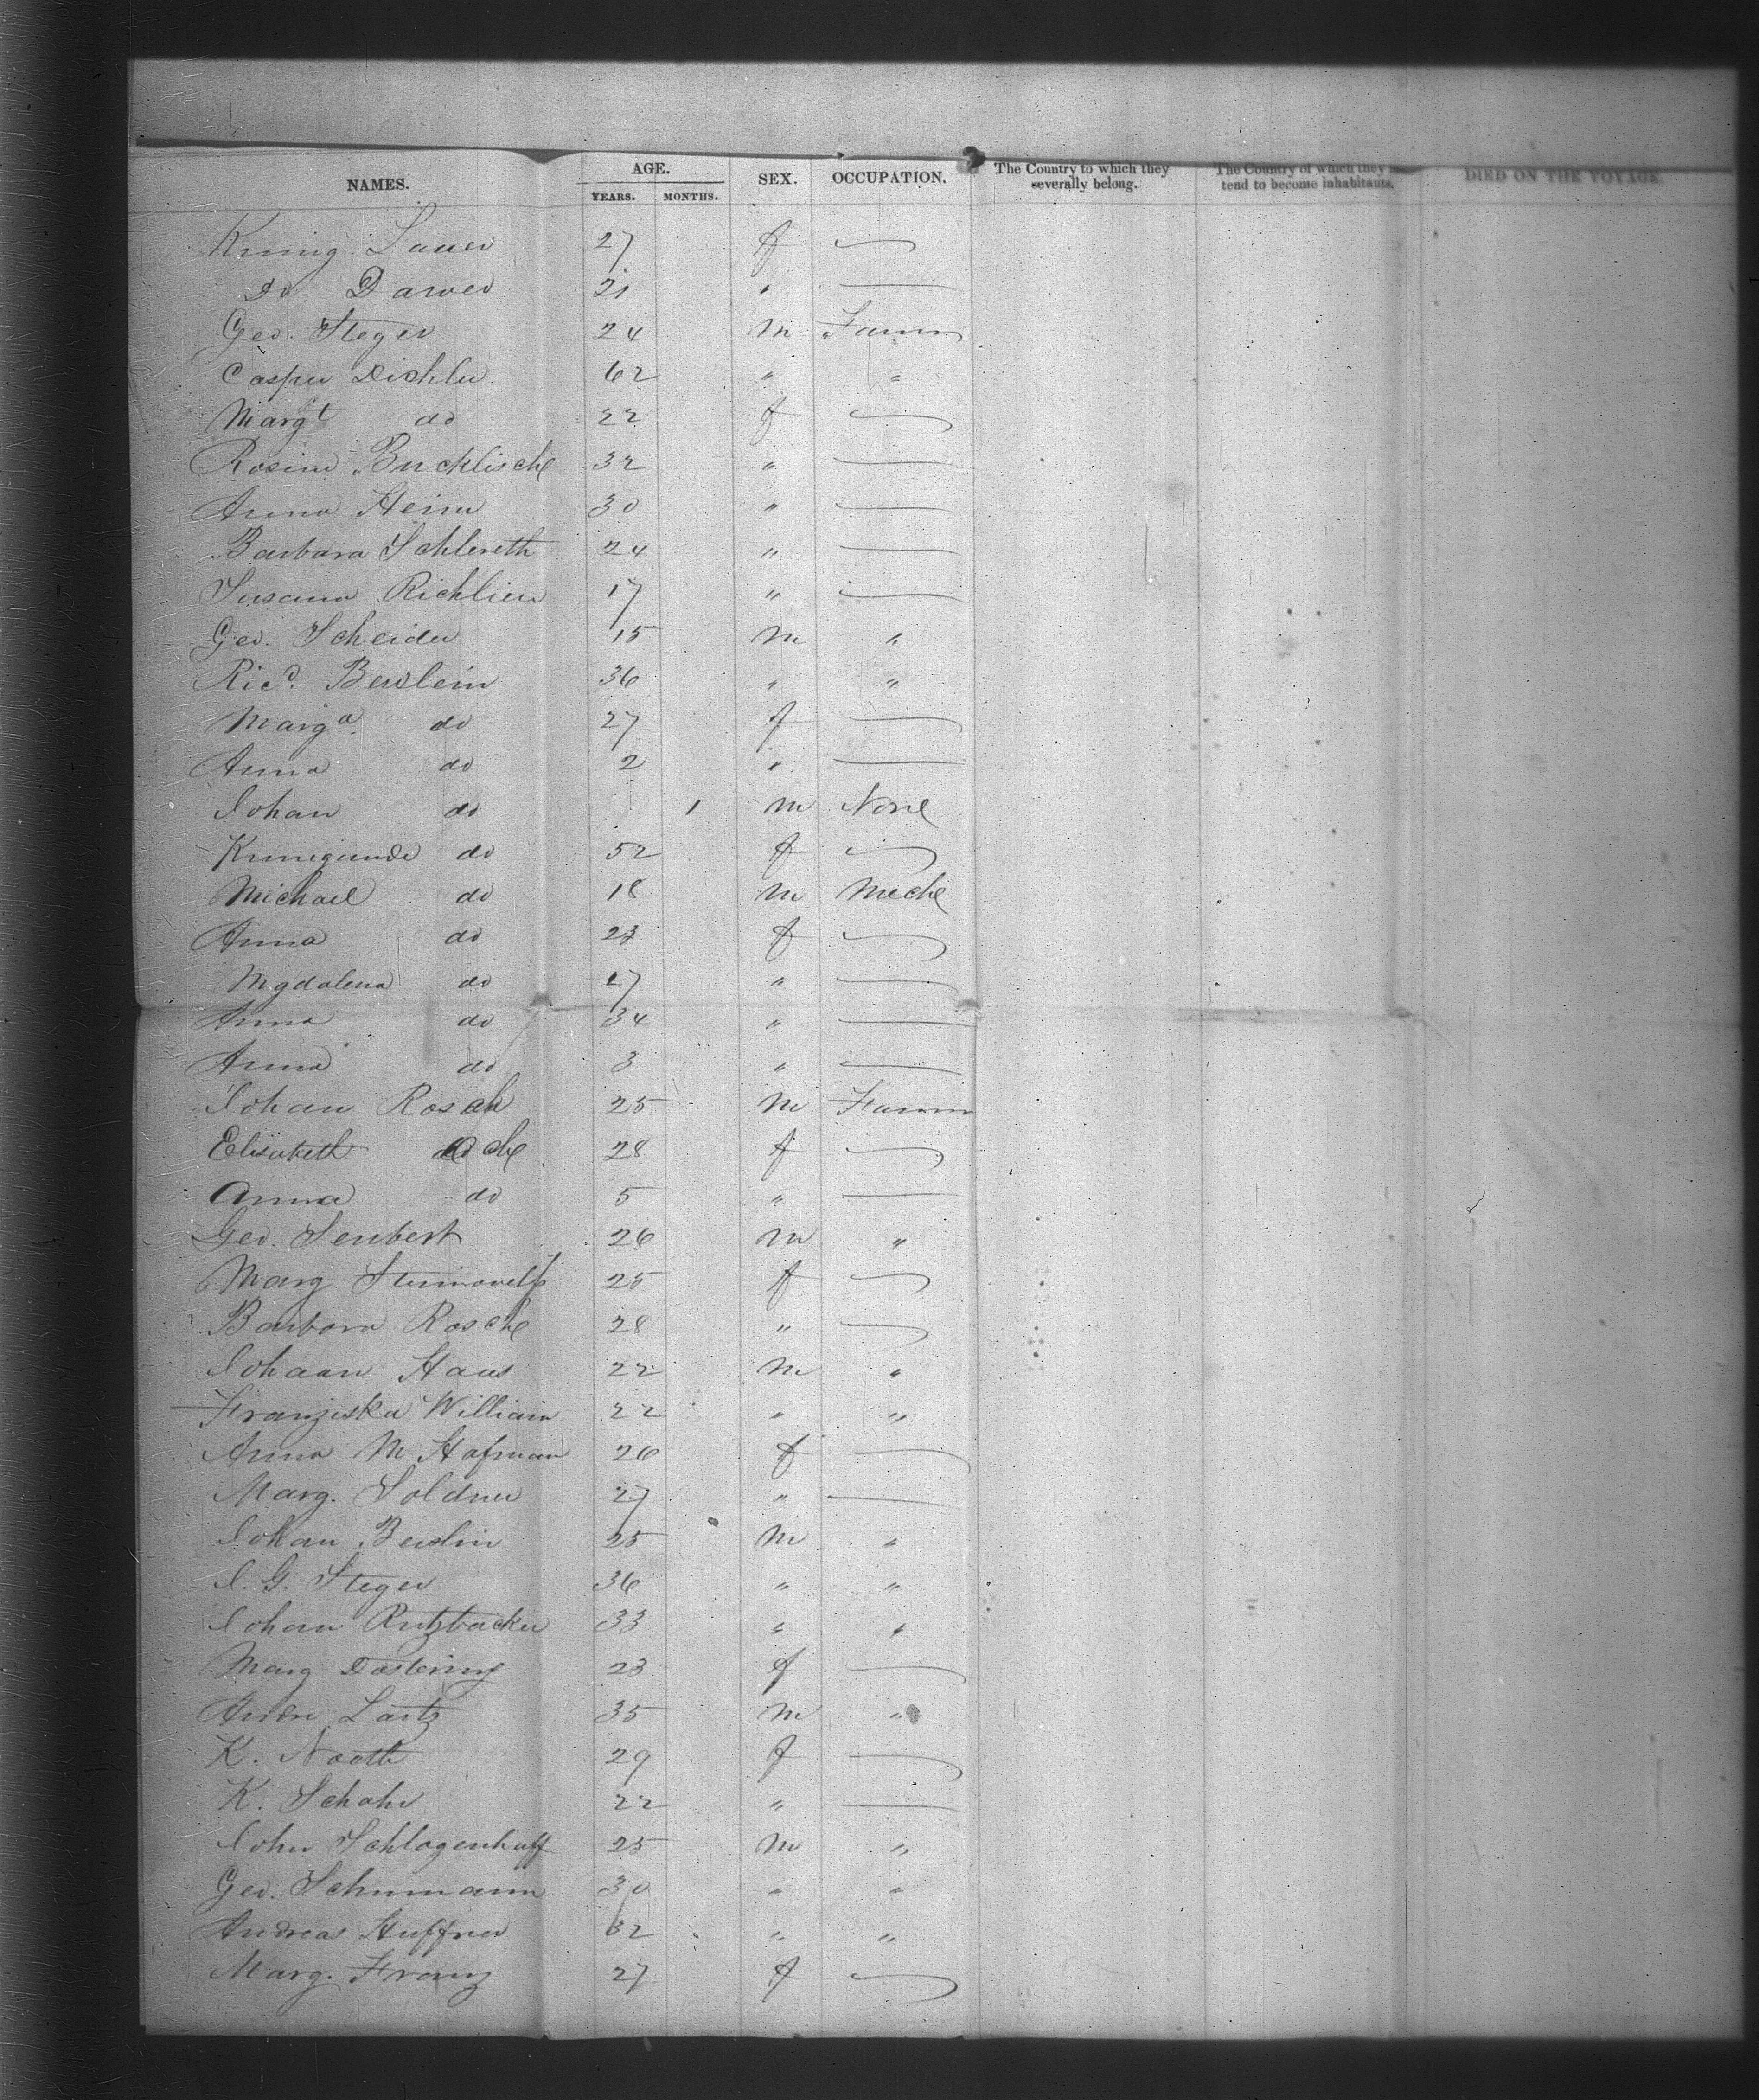 NAMES. AGE. SEX. OCCUPATION. The Country to which they severally belong. The Country of which they intend to become inhabitants. DIED ON THE VOYAGE
YEARS. MONTHS.
Kunig. Lauer 27 f
Do 21 "
Geo. Steger 24 m Farmr
Casper Dichler 62 " "
Margt do 22 f
Rosina 32 "
Anna Heim 30 "
Barbara Schlereth 24 "
Susana Richlien 17 "
Geo. Scheider 15 m "
Ricd. Bewlein 36 " "
Marga. do 27 f
Anna do 2 "
Johan do 1 m None
Kunegunde do 52 f
Michael do 18 m Mech
Anna do 23 f
Mgdalena do 17 "
Anna do 34 "
Anna do 3 "
Johan Rosch 25 m Farmr
Elisabeth do 28 f
Anna do 5 "
Geo. Seubert 26 m "
Marg 25 f
Barbara Rosche 28 "
Johaan Haas 22 m "
Franziska William 22 " "
Anna M Hofman 26 f
Marg. Soldner 27 "
Johan Bewlin 25 m "
J. G. Steger 36 " "
Johan Rutzbacker 33 " "
Marg Dostering 23 f
Andre Lautz 35 m "
K. Nooth 29 f
K. Schohr 22 "
John Schlogenhoff 25 m "
Geo. Schumann 30 " "
Andreas Huffner 32 " "
Marg. Franz 27 f